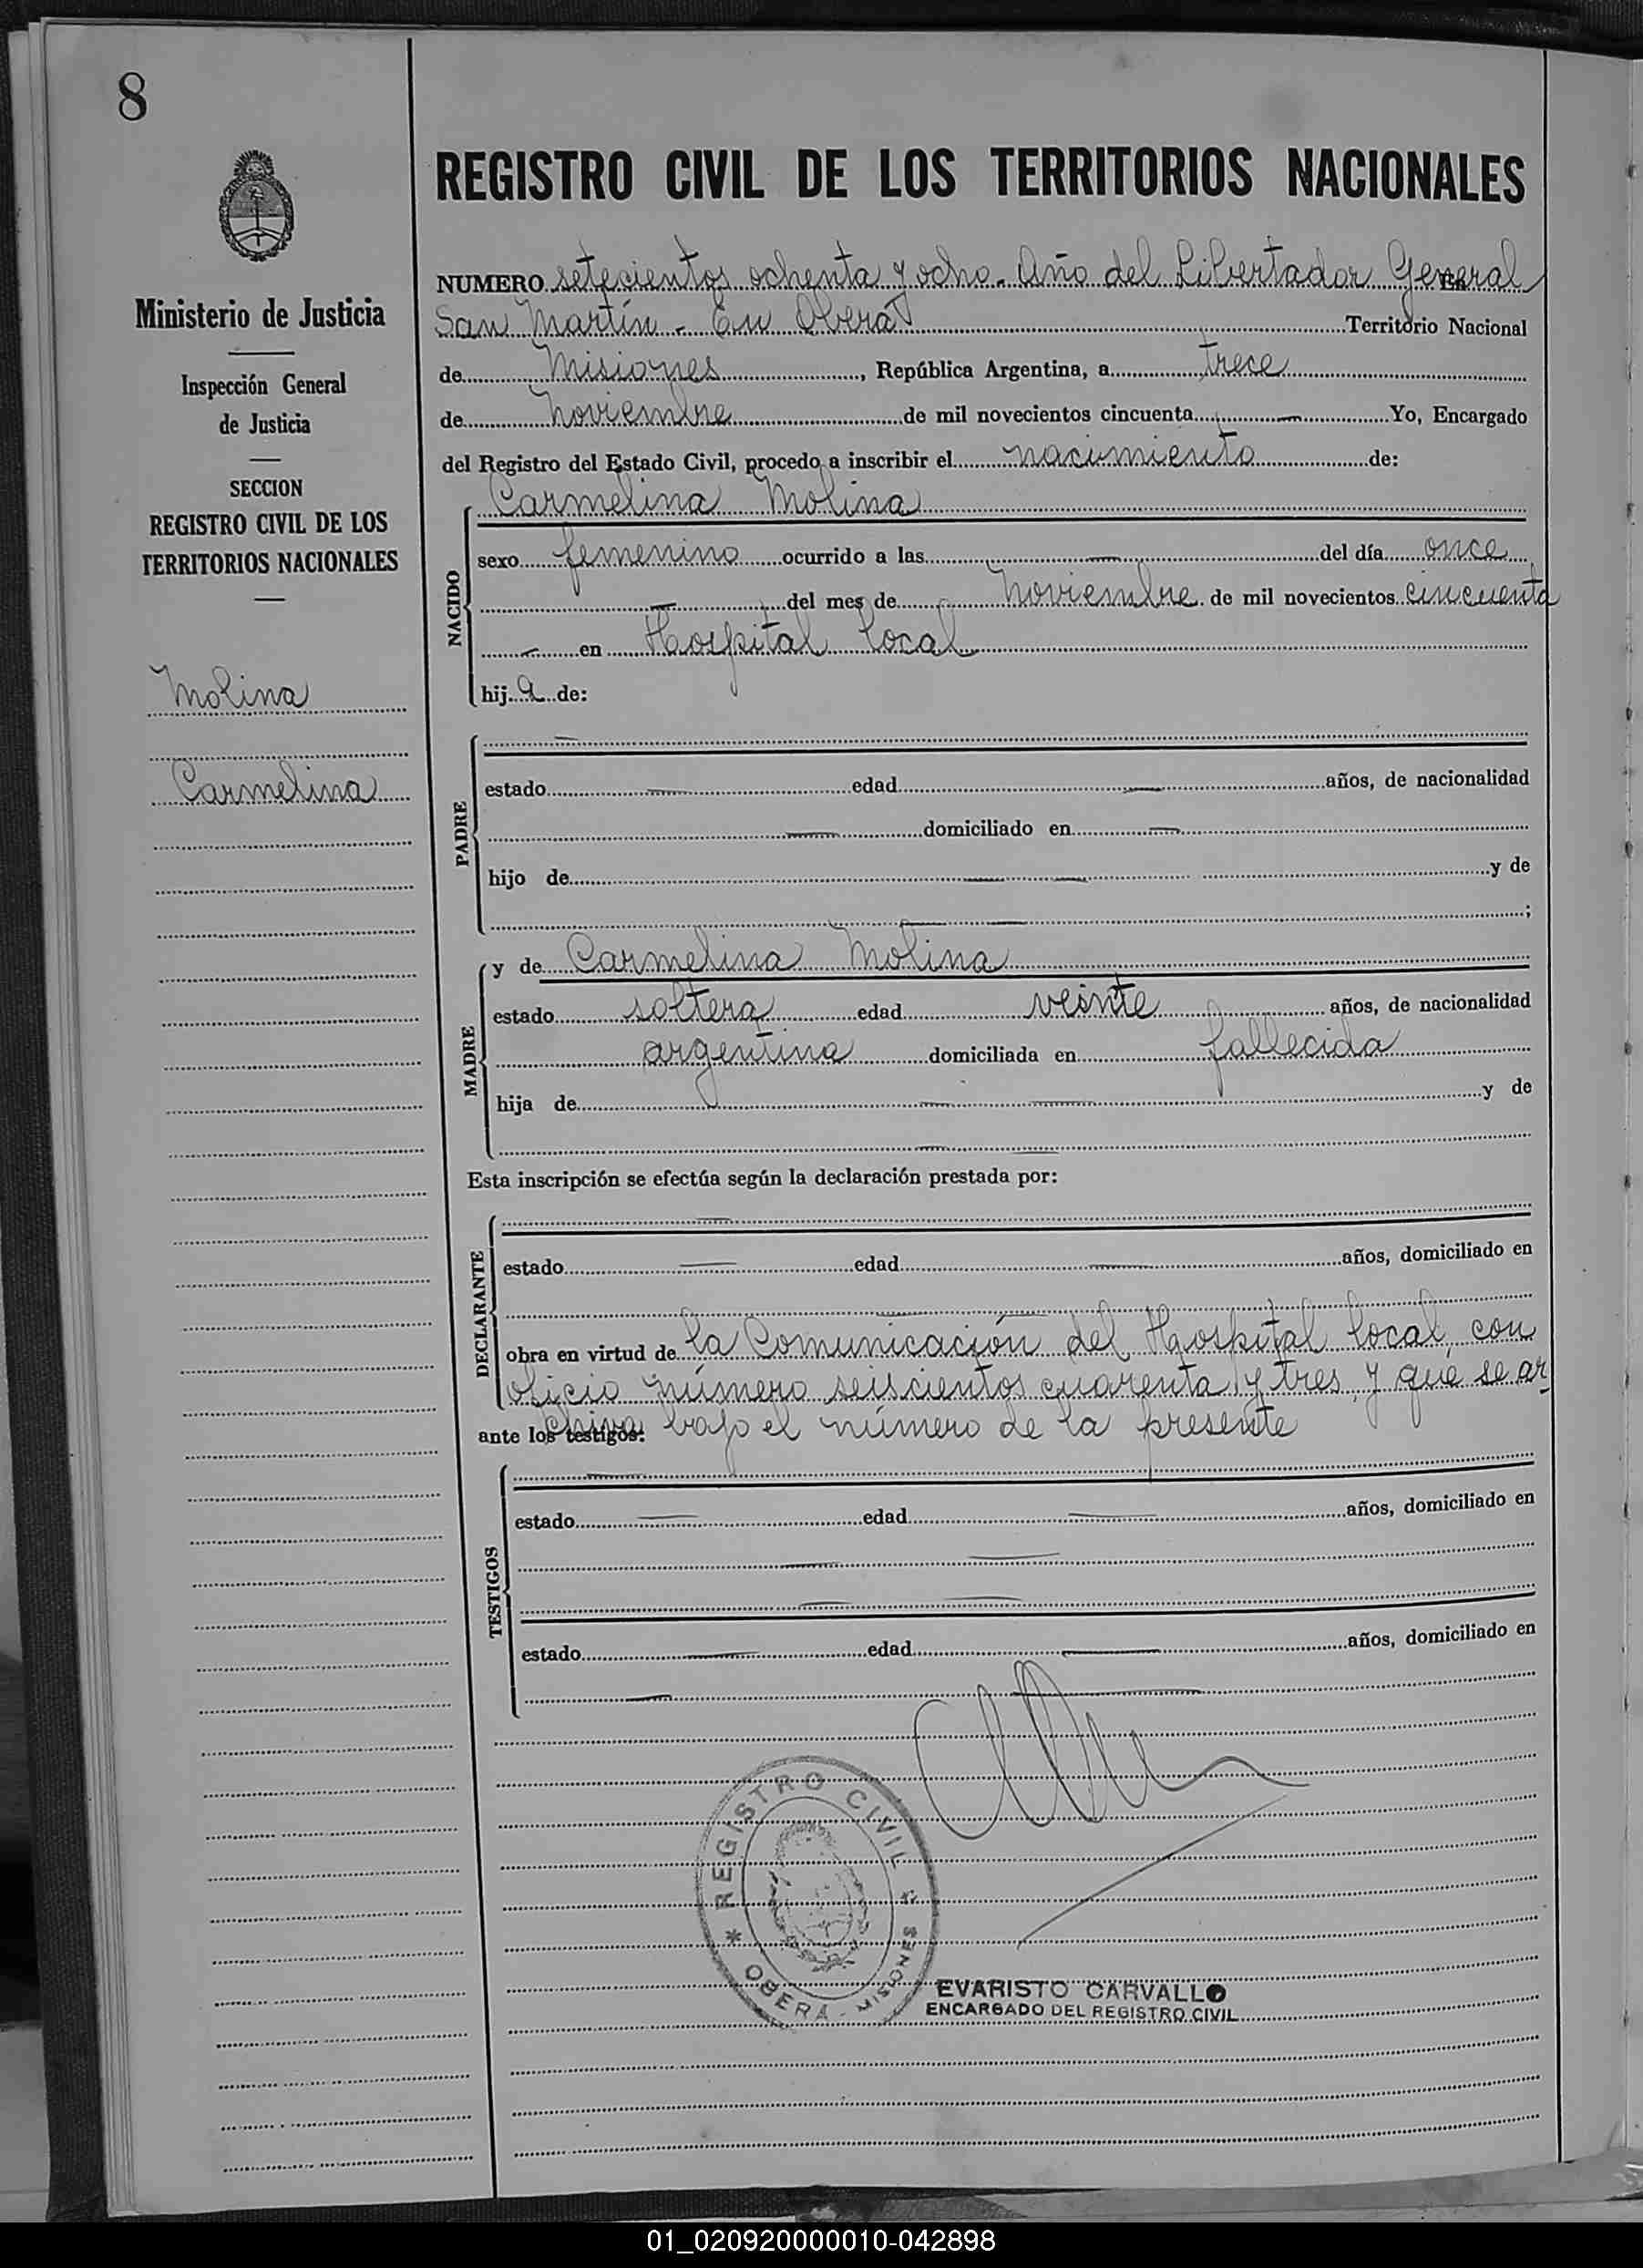 8
REGISTRO CIVIL DE LOS TERRITORIOS NACIONALES
Ministerio de Justicia
Inspección General
de Justicia
SECCION
REGISTRO CIVIL DE LOS
TERRITORIOS NACIONALES
Molina
Carmelina
NUMERO setecientos ochenta y ocho. Año del Libertador General En
San Martín - En Oberá Territorio Nacional
de Misiones, República Argentina, a trece
de noviembre de mil novecientos cincuenta — Yo, Encargado
del Registro del Estado Civil, procedo a inscribir el nacimiento de:
NACIDO
Carmelina Molina
sexo femenino ocurrido a las — del día once
— del mes de noviembre de mil novecientos cincuenta
— en Hospital local
hija de:
PADRE
—
estado — edad — años, de nacionalidad
— domiciliado en —
hijo de — — y de
— ;
MADRE
y de Carmelina Molina
estado soltera edad veinte años, de nacionalidad
argentina domiciliada en fallecida
hija de — — y de
— —
Esta inscripción se efectúa según la declaración prestada por:
DECLARANTE
—
estado — edad — años, domiciliado en
— —
obra en virtud de la Comunicación del Hospital local, con
oficio número seiscientos cuarenta y tres y que se ar
ante los testigos: chiva bajo el número de la presente
TESTIGOS
—
estado — edad — años, domiciliado en
— —
— —
estado — edad — años, domiciliado en
— —
* REGISTRO CIVIL *
OBERA - MISIONES
EVARISTO CARVALLO
ENCARGADO DEL REGISTRO CIVIL
01_020920000010-042898